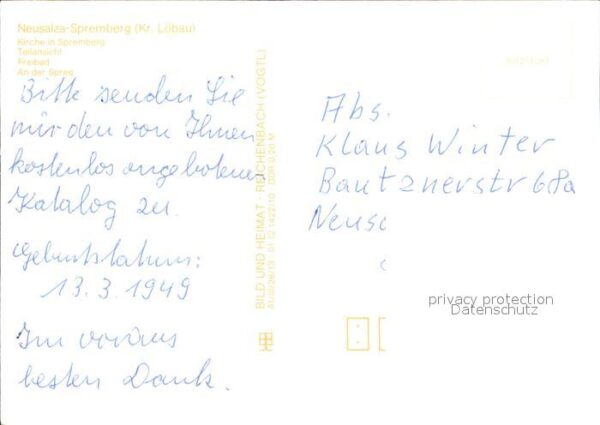 Neusalza-Spremberg (Kr. Löbau)
Kirche in Spremberg
Teilansicht
Freibad
An der Spree
Bitte senden Sie
mir den von Ihnen
kostenlos angebotenen
Katalog zu.
Geburtsdatum:
13.3.1949
Im voraus
besten Dank.
BILD UND HEIMAT · REICHENBACH (VOGTL)
DDR 0,20 M
Abs.
Klaus Winter
Bautznerstr 68a
Neusa
privacy protection
Datenschutz